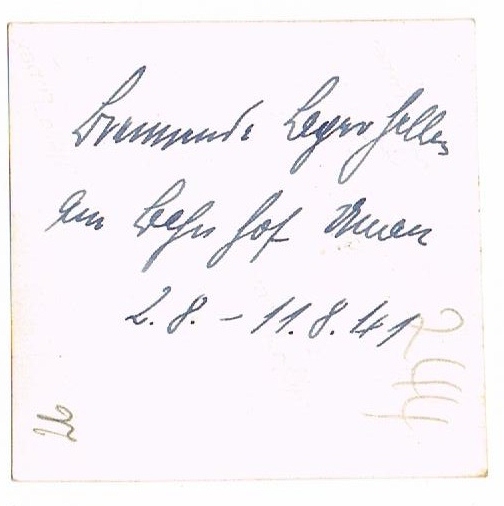 Brennende Lagerhallen
am Bahnhof Uman
2.8. – 11.8.41
244
26